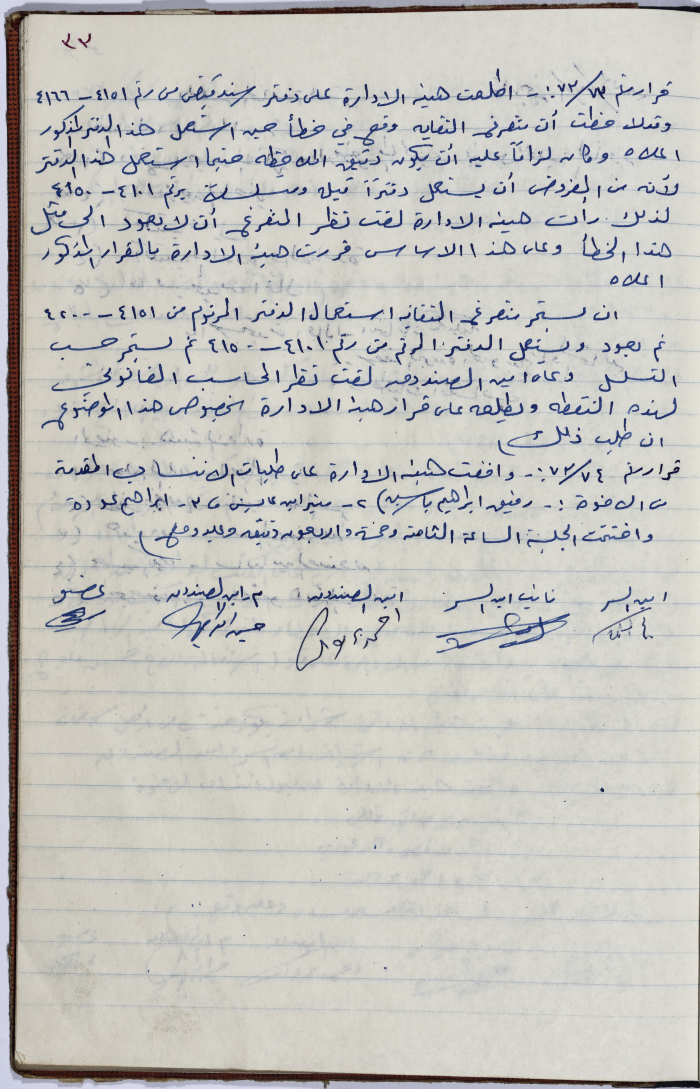 ٣٣
قرار رقم ٧٣/٧٣ :- اطلعت هيئة الادارة على دفتر سند قبض من رقم ٤١٥١ - ٤١٦٦
وقد لاحظت أن متفرغي النقابه وقع في خطأ حين استعمل هذا الدفتر المذكور
اعلاه وكان لزاماً عليه أن يكون دقيق الملاحظه حينما استعمل هذا الدفتر
لأنه من المفروض أن يستعمل دفتراً قبله ومسلسلة برقم ٤١٠١ - ٤١٥٠
لذلك رأت هيئة الادارة لفت نظر المتفرغي أن لا يعود الى مثل
هذا الخطأ وعلى هذا الاساس قررت هيئة الادارة بالقرار المذكور
اعلاه
ان يستمر متفرغي النقابه استعمال الدفتر المرقوم من ٤١٥١ - ٤٢٠٠
ثم يعود ويستعمل الدفتر الرقم من رقم ٤١٠١ - ٤١٥٠ ثم يستمر حسب
التسلسل وعلى امين الصندوق لفت نظر المحاسب القانوني
لهذه النقطه ويطلعه على قرار هيئة الادارة بخصوص هذا الموضوع
ان طلب ذلك
قرار رقم ٧٣/٧٤ :- وافقت هيئة الادارة على طلبات الانتساب المقدمة
من الاخوة :- رفيق ابراهيم ياسين ٢-
٣- ابراهيم عودة
واختتمت الجلسة الساعة الثامنة وخمسة واربعون دقيقه وعليه وقع
امين السر نائب امين السر امين الصندوق م. امين الصندوق عضو